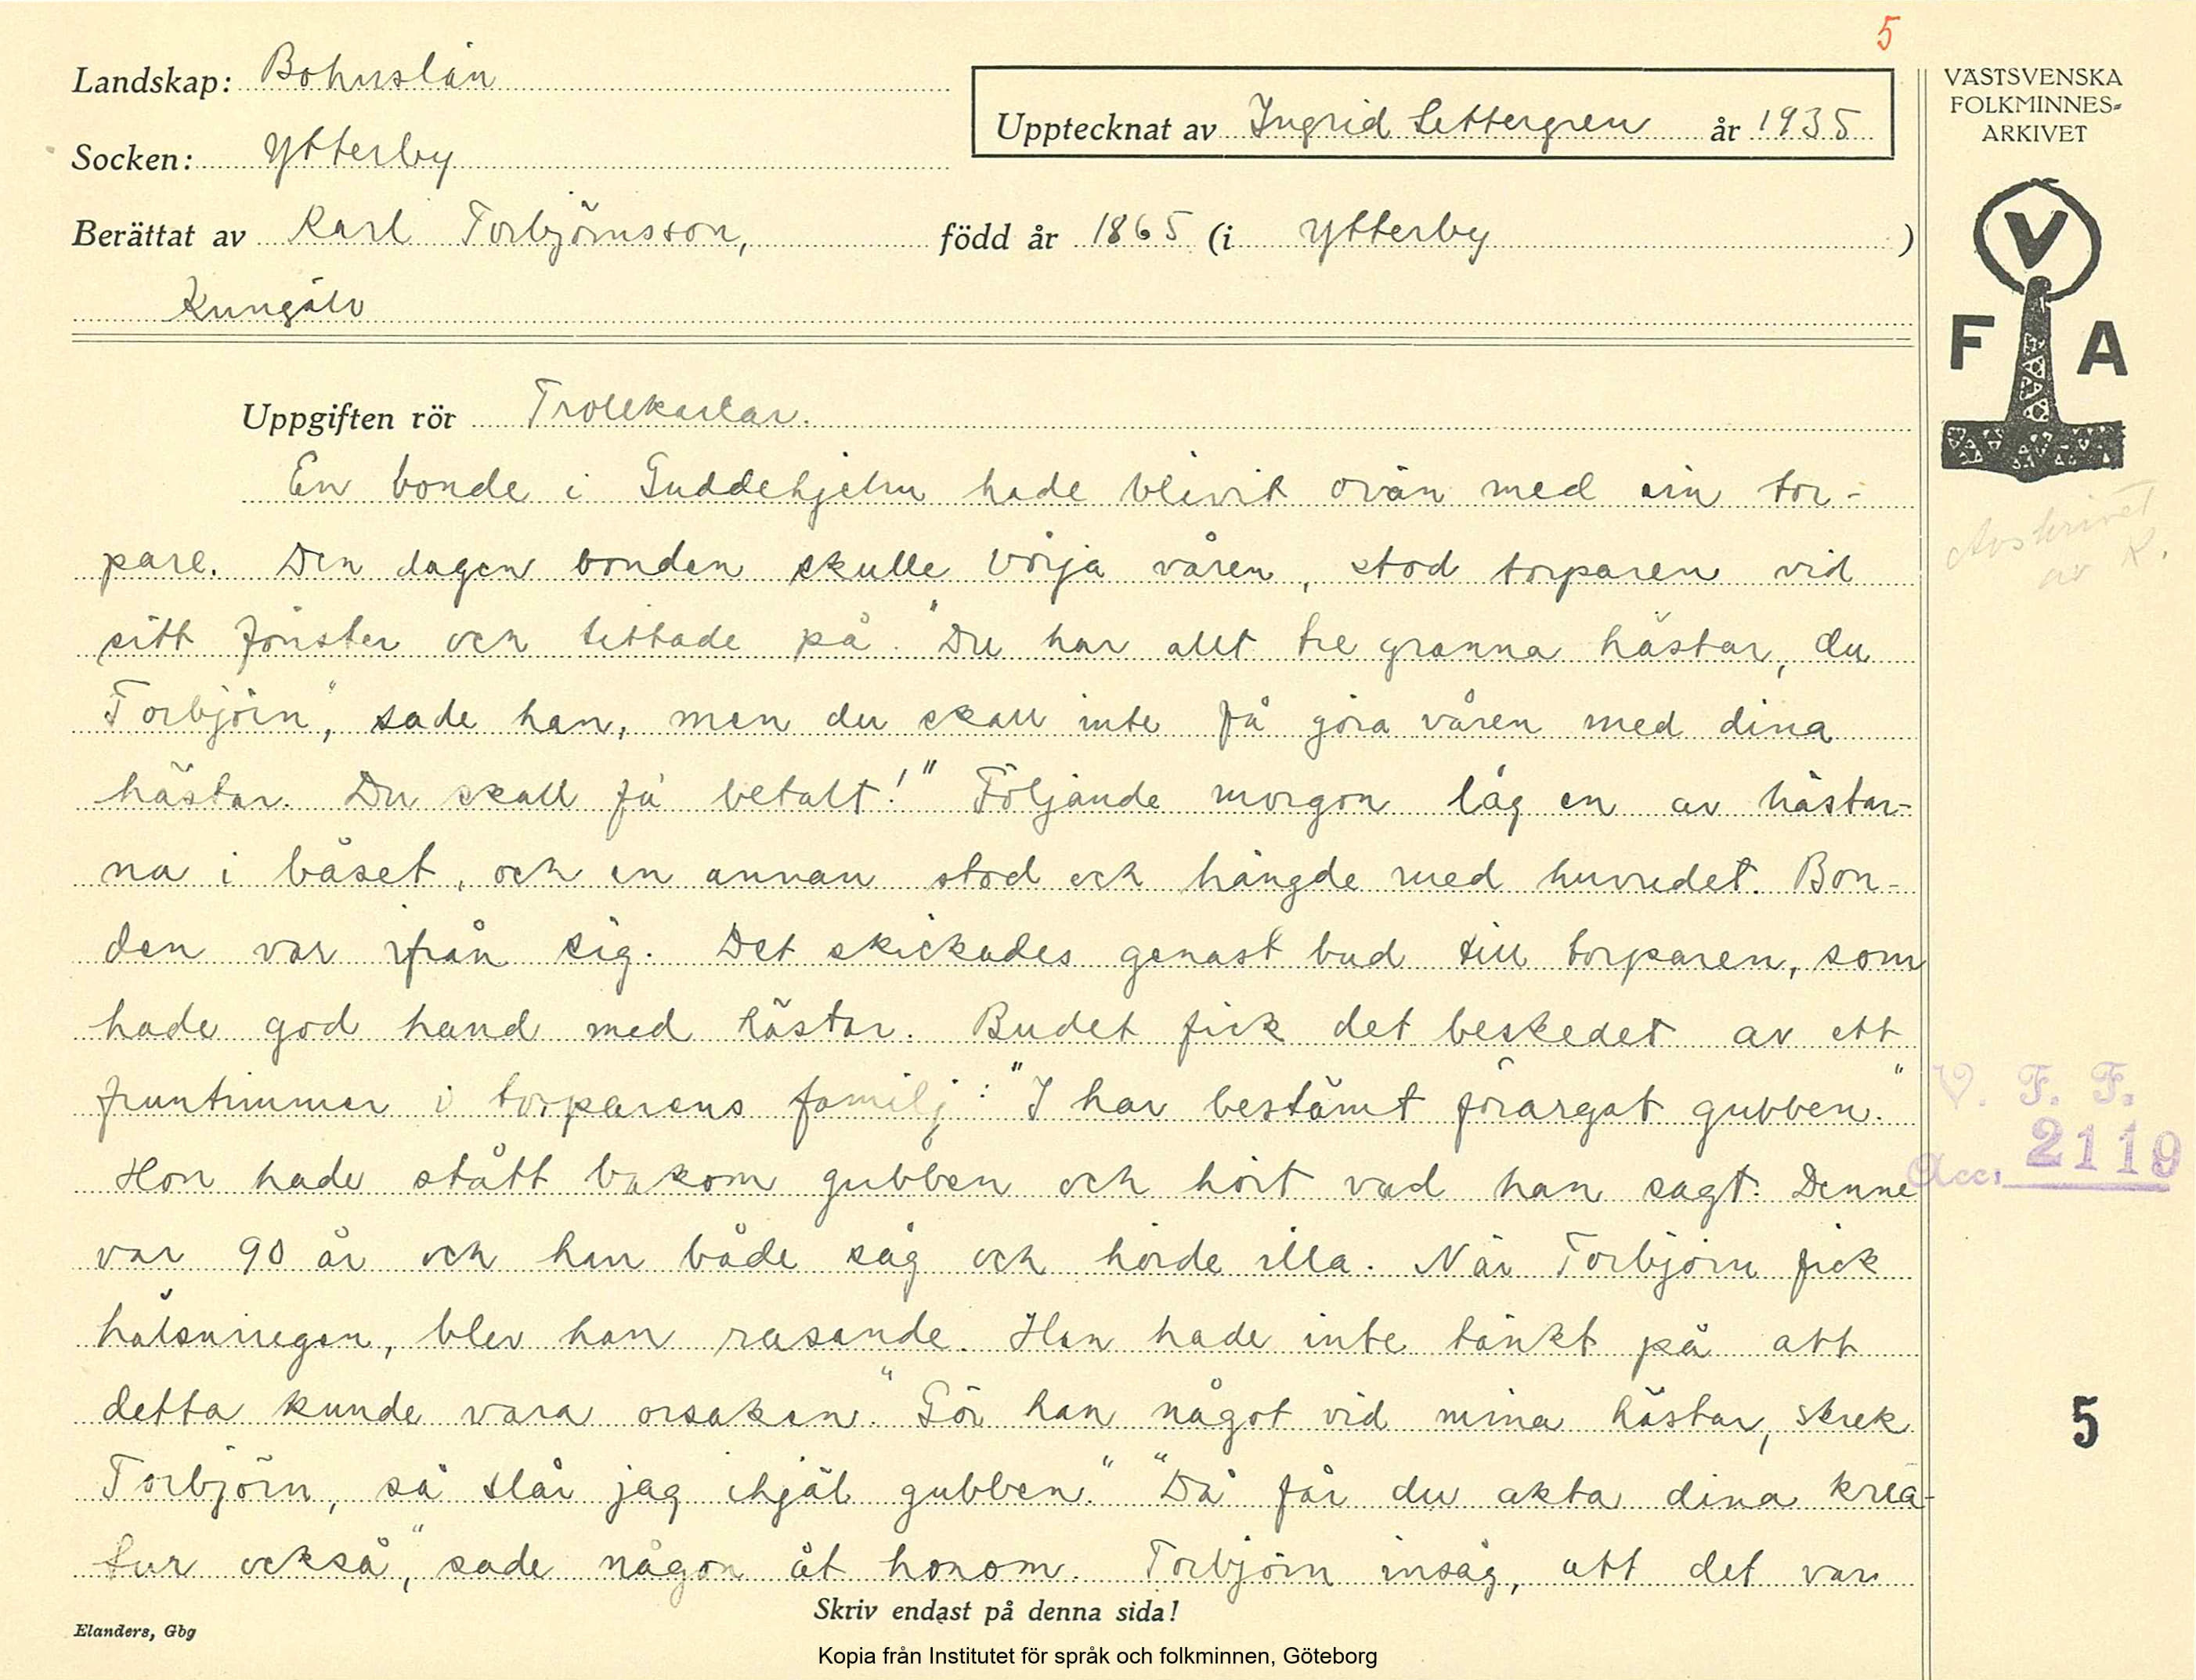 5
Landskap: Bohuslän
Socken: Ytterby
Upptecknat av Ingrid Settergren år 1935
Berättat av Karl Torbjörnsson, född år 1865 (i Ytterby )
Kungälv
VÄSTSVENSKA
FOLKMINNES-
ARKIVET
V
F A
Uppgiften rör Trollkarlar.
En bonde i Guddehjelm hade blivit ovän med sin tor-
pare. Den dagen bonden skulle börja våren, stod torparen vid
sitt fönster och tittade på. "Du har allt tre granna hästar, du
Torbjörn", sade han, men du skall inte få göra våren med dina
hästar. Du skall få betalt!" Följande morgon låg en av hästar-
na i båset, och en annan stod och hängde med huvudet. Bon-
den var ifrån sig. Det skickades genast bud till torparen, som
hade god hand med hästar. Budet fick det beskedet av ett
fruntimmer i torparens familj: "I har bestämt förargat gubben."
Hon hade stått bakom gubben och hört vad han sagt. Denne
var 90 år och han både såg och hörde illa. När Torbjörn fick
hälsningen, blev han rasande. Han hade inte tänkt på att
detta kunde vara orsaken. "Gör han något vid mina hästar, skrek
Torbjörn, så slår jag ihjäl gubben." "Då får du akta dina krea-
tur också," sade någon åt honom. Torbjörn insåg, att det var
Avskrivet
av K.
V. F. F.
Acc. 2119
5
Skriv endast på denna sida!
Elanders, Gbg
Kopia från Institutet för språk och folkminnen, Göteborg